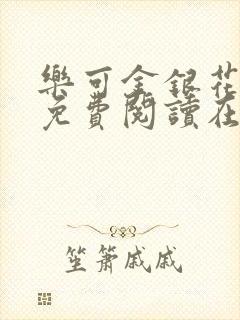 樂可金銀花
免費閱讀在
笙簫戚戚